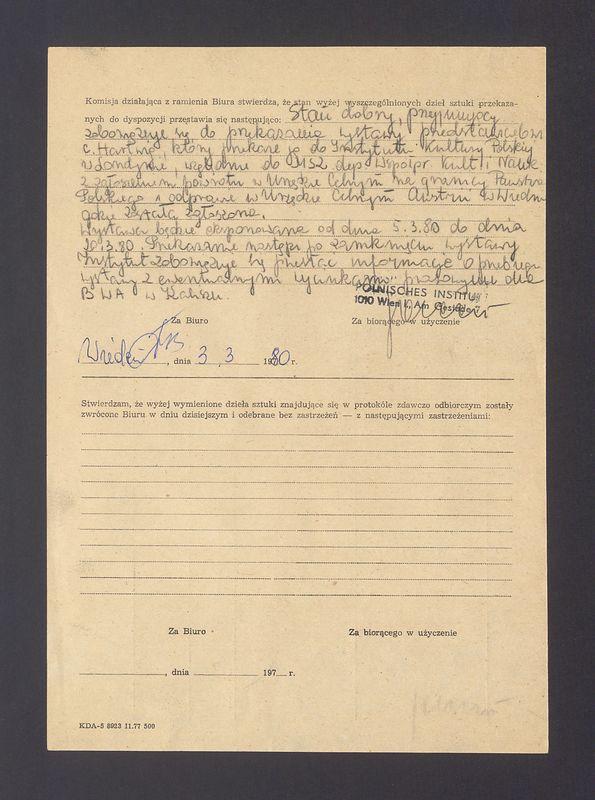 Komisja działająca z ramienia Biura stwierdza, że stan wyżej wyszczególnionych dzieł sztuki przekaza-
nych do dyspozycji przestawia się następująco: Stan dobry, przyjmujący
zobowiązuje się do przekazania wystawy przedstawicielowi
c. Hartwig, który przekaże ją do Instytutu Kultury Polskiej
w Londynie, względnie do MSZ dep. Współpr. Kult. i Nauk.
z zgłoszeniem powrotu w Urzędzie Celnym na granicy Państwa
Polskiego i odprawę w Urzędzie Celnym Austrii w Wiedniu
gdzie została zgłoszona.
Wystawa będzie eksponowana od dnia 5.3.80 do dnia
20.3.80. Przekazanie nastąpi po zamknięciu wystawy
Instytut zobowiązuje się przesłać informację o przebiegu
wystawy z ewentualnymi wycinkami prasowymi dla
BWA w
POLNISCHES INSTITUT
1010 Wien I, Am Gestade 7
Za Biuro Za biorącego w użycienie
Wiedeń, dnia 3.3 1980 r.
Stwierdzam, że wyżej wymienione dzieła sztuki znajdujące się w protokóle zdawczo odbiorczym zostały
zwrócone Biuru w dniu dzisiejszym i odebrane bez zastrzeżeń — z następującymi zastrzeżeniami:
Za Biuro Za biorącego w użycienie
, dnia 197 r.
KDA-5 8923 11.77 500